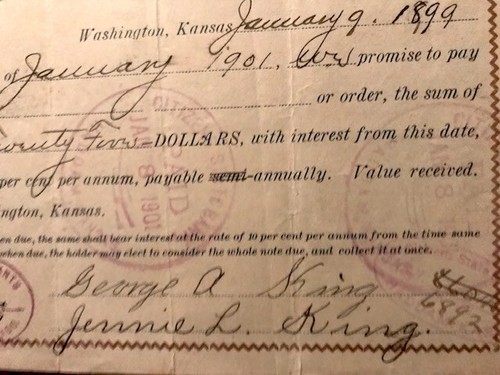 Washington, Kansas, January 9. 1899
of January 1901, We promise to pay
or order, the sum of
DOLLARS, with interest from this date,
per cent per annum, payable semi-annually. Value received.
ington, Kansas.
en due, the same shall bear interest at the rate of 10 per cent per annum from the time same
when due, the holder may elect to consider the whole note due, and collect it at once.
George A King
Jennie L. King.
6892
PAID
JAN 8 1901